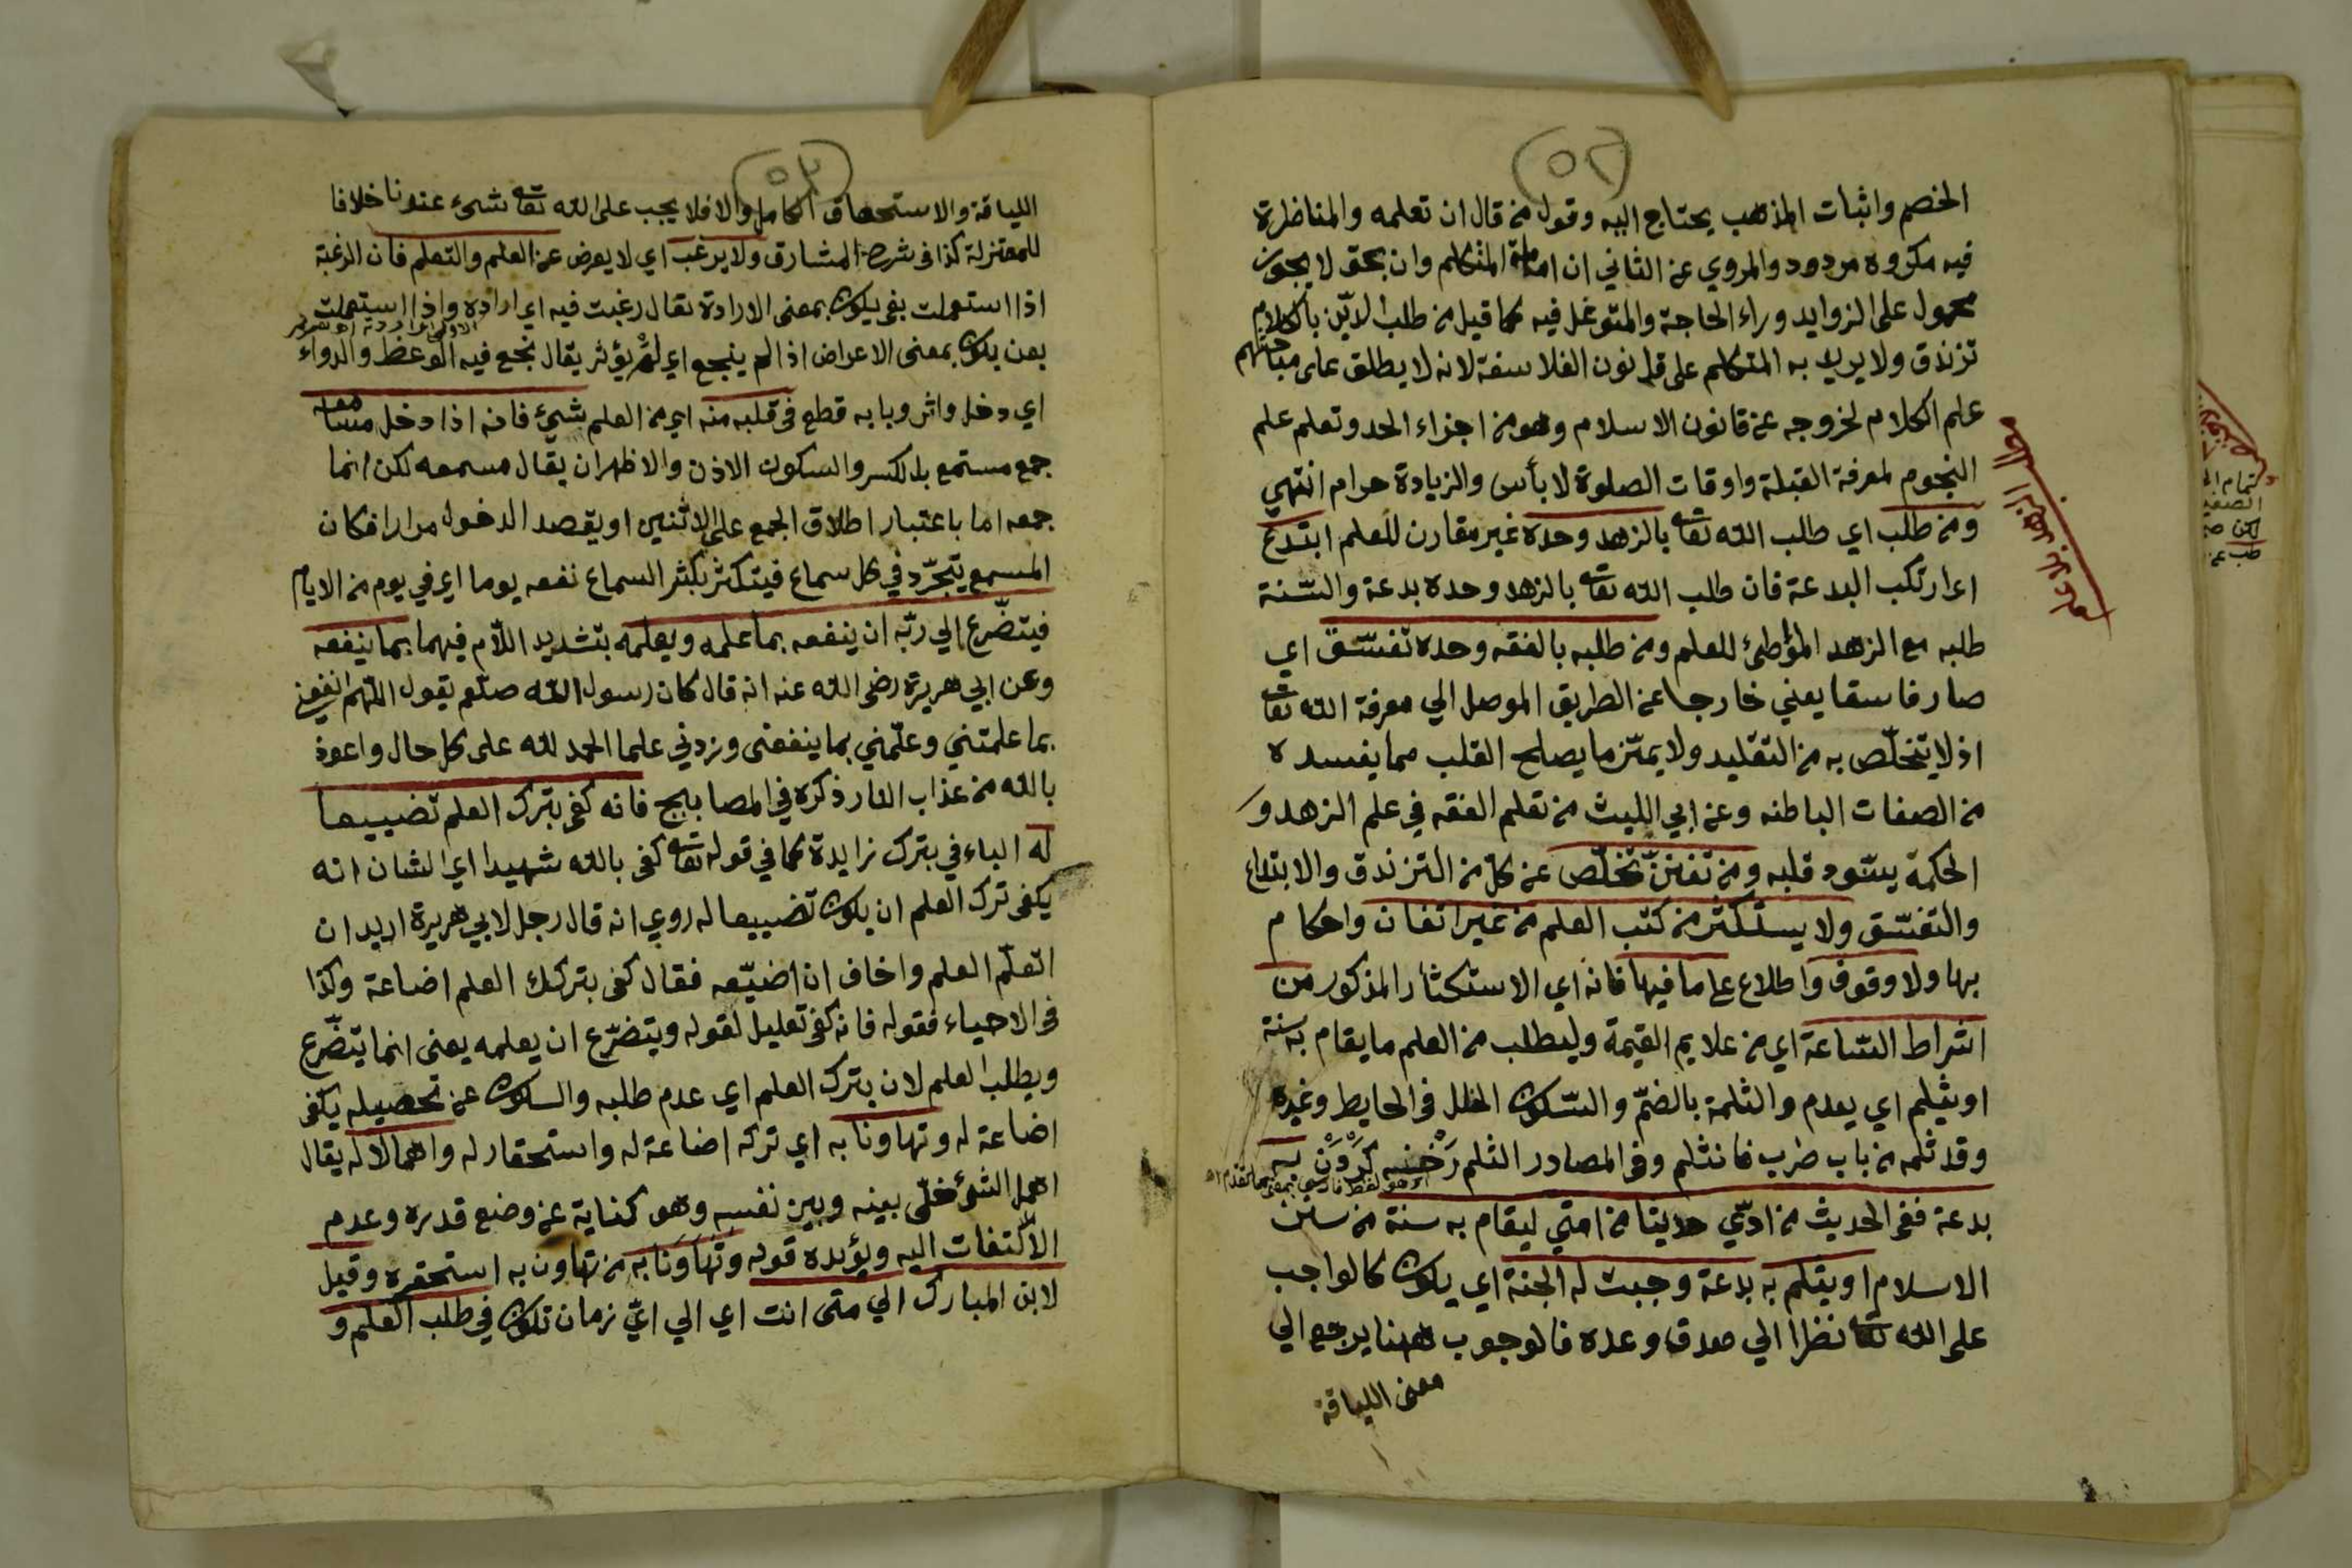 (٥٢)
الخصم واثبات المذهب يحتاج اليه وقول من قال ان تعلمه والمناظرة
فيه مكروه مردود والمروي عن الثاني ان امامة المتكلم وان بحق لا يجوز
محمول على الزوايد وراء الحاجة والمتوغل فيه كما قيل من طلب الدّين بالكلام
تزندق ولا يريد به المتكلم على قانون الفلاسفة لانه لا يطلق على مباحثهم
علم الكلام لخروجه عن قانون الاسلام وهو من اجزاء الحد وتعلم علم
النجوم لمعرفة القبلة واوقات الصلوة لا بأس والزيادة حرام انتهي
ومن طلب اي طلب الله تعا بالزهد وحده غير مقارن للعلم ابتدع
اي ارتكب البدعة فان طلب الله تعا بالزهد وحده بدعة والسّنة
طلبه مع الزهد المؤطئ للعلم ومن طلبه بالفقه وحده تفسّق اي
صار فاسقا يعني خارجا عن الطريق الموصل الي معرفة الله تعا
اذ لا يتخلّص به من التقليد ولا يميّز ما يصلح القلب مما يفسده
من الصفات الباطنه وعن ابي الليث من تعلم الفقه في علم الزهد و
الحكمة يسّود قلبه ومن تفنّن تخلّص عن كل من التزندق والابتداع
والتفسّق ولا يستكثر من كتب العلم من غير اتفان واحكام
بها ولا وقوف واطلاع على ما فيها فانه اي الاستكثار المذكور من
اشراط السّاعة اي من علايم القيمة وليطلب من العلم ما يقام به سنة
او يثلم اي يعدم والثلمة بالضمّ والسّكون الخلل في الحايط وغيره
وقد ثلمه من باب ضرب فانثلم وفي المصادر الثلم رَخْنه كَرْدَنْ به
بدعة ففى الحديث من ادّي حديثا من امتي ليقام به سنة من سنن
الاسلام او يثلم به بدعة وجبت له الجنة اي يكون كالواجب
على الله تعا نظرا الي صدق وعده فالوجوب ههنا يرجع الي
معنى اللياقة
مطلب الزهد بلا علم
(٥٣)
اللياقة والاستحقاق الكامل والا فلا يجب على الله تعا شىء عندنا خلافا
للمعتزلة كذا فى شرح المشارق ولا يرغب اي لا يعرض عن العلم والتعلم فان الرغبة
اذا استعملت بفى يكون بمعنى الارادة تقال رغبت فيه اي اراده واذا استعملت
بعن يكون بمعنى الاعراض اذا لم ينجع اي لم يؤثر يقال نجع فيه الوعظ والدواء
اي دخل واثر وبابه قطع فى قلبه منه اي من العلم شيئ فانه اذا دخل مسامعه
جمع مستمع بالكسر والسكون الاذن والاظهر ان يقال مسمعه لكن انما
جمعه اما باعتبار اطلاق الجمع على الاثنين او يقصد الدخول مرارا فكان
المسمع يتجرّد في كل سماع فيتكثر بكثر السماع نفعه يوما اي في يوم من الايام
فيتضّرع الي ربّه ان ينفعه بما علمه ويعلمه بتشديد اللّام فيهما بما ينفعه
وعن ابي هريرة رضى الله عنه انه قال كان رسول الله صلّعم يقول اللّهم انفعني
بما علمتني وعلّمني بما ينفعنى وزدني علما الحمد لله على كل حال واعوذ
بالله من عذاب النار ذكره في المصابيح فانه كفى بترك العلم تضييعا
له الباء في بترك زايدة كما في قوله تعا كفى بالله شهيدا اي الشان انه
يكفى ترك العلم ان يكون تضييعا له روي انه قال رجل لابي هريرة اريد ان
اتعلّم العلم واخاف ان اضيّعه فقال كفى بتركك العلم اضاعة وكذا
فى الاحياء فقوله فانه كفى تعليل لقوله ويتضرّع ان يعلمه يعنى انما يتضّرع
ويطلب العلم لان بترك العلم اي عدم طلبه والسكون عن تحصيله يكفى
اضاعة له وتهاونا به اي تركه اضاعة له واستحقار له واهمالا له يقال
اهمل الشئ خلّى بينه وبين نفسه وهو كناية عن وضع قدره وعدم
الاكتفات اليه ويؤيده قوله وتَهَاوَنَا به من تهاون به استحقره وقيل
لابن المبارك الي متى انت اي الي ايّ زمان تكون في طلب العلم و